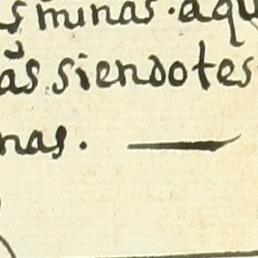 s minas. aqu
as siendotes
nas.